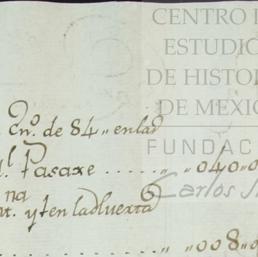 CENTRO
ESTUDIO
DE HISTO
DE MEXI
FUNDAC
Carlos S
En.º de 84 ,, en lad
l Pasaxe ...... ,, 040 ,, 0
na
nt. y ten la dhuexta
,, ,, 008 ,, 0